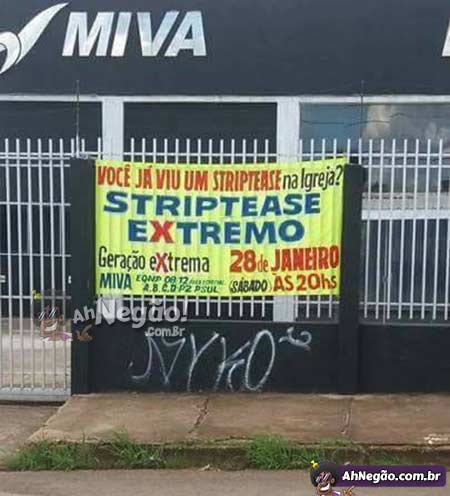 MIVA
VOCÊ JÁ VIU UM STRIPTEASE na Igreja?
STRIPTEASE
EXTREMO
Geração eXtrema 28 de JANEIRO
MIVA EQNP 08.12
A.B.C.D P2 PSUL (SÁBADO) ÀS 20hs
AhNegão!
.com.br
AhNegão.com.br